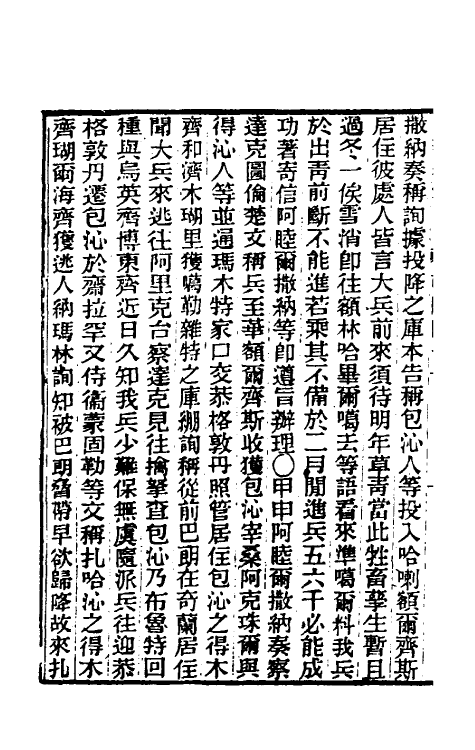 撒納奏稱詢據投降之庫本告稱包沁人等投入哈喇額爾齊斯
居住彼處人皆言大兵前來須待明年草靑當此牲畜孳生暫且
過冬一俟雪消卽往額林哈畢爾噶去等語看來準噶爾料我兵
於出靑前斷不能進若乘其不備於二月閒進兵五六千必能成
功著寄信阿睦爾撒納等卽遵旨辦理○甲申阿睦爾撒納奏察
達克圖倫楚文稱兵至華額爾齊斯收獲包沁宰桑阿克珠爾與
得沁人等並通瑪木特家口交恭格敦丹照管居住包沁之得木
齊和濟木瑚里獲噶勒雜特之庫綳詢稱從前巴朗在奇蘭居住
聞大兵來逃往阿里克台察達克見往擒拏查包沁乃布魯特回
種與烏英齊博東齊近日久知我兵少難保無虞隨派兵往迎恭
格敦丹遷包沁於齋拉罕又侍衞蒙固勒等文稱扎哈沁之得木
齊瑚爾海齊獲逃人納瑪林詢知被巴朗脅帶早欲歸降故來扎